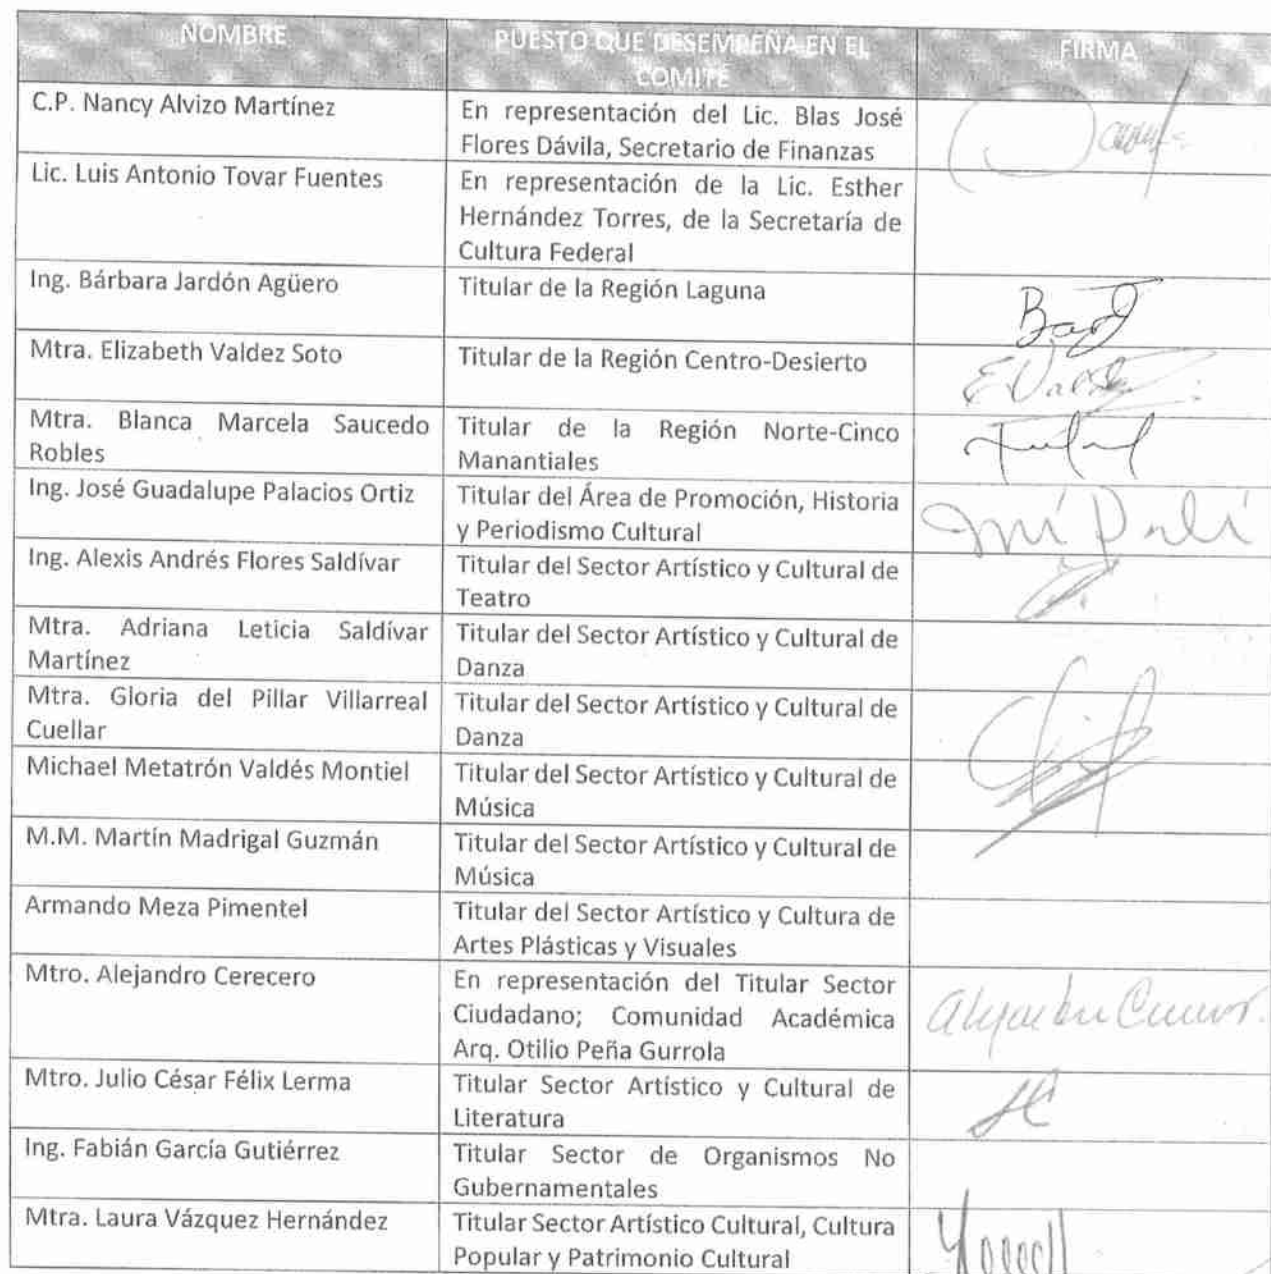 NOMBRE
PUESTO QUE DESEMPEÑA EN EL
COMITÉ
FIRMA
C.P. Nancy Alvizo Martínez
En representación del Lic. Blas José
Flores Dávila, Secretario de Finanzas
Lic. Luis Antonio Tovar Fuentes
En representación de la Lic. Esther
Hernández Torres, de la Secretaría de
Cultura Federal
Ing. Bárbara Jardón Agüero
Titular de la Región Laguna
Mtra. Elizabeth Valdez Soto
Titular de la Región Centro-Desierto
Mtra. Blanca Marcela Saucedo
Robles
Titular de la Región Norte-Cinco
Manantiales
Ing. José Guadalupe Palacios Ortiz
Titular del Área de Promoción, Historia
y Periodismo Cultural
Ing. Alexis Andrés Flores Saldívar
Titular del Sector Artístico y Cultural de
Teatro
Mtra. Adriana Leticia Saldívar
Martínez
Titular del Sector Artístico y Cultural de
Danza
Mtra. Gloria del Pillar Villarreal
Cuellar
Titular del Sector Artístico y Cultural de
Danza
Michael Metatrón Valdés Montiel
Titular del Sector Artístico y Cultural de
Música
M.M. Martín Madrigal Guzmán
Titular del Sector Artístico y Cultural de
Música
Armando Meza Pimentel
Titular del Sector Artístico y Cultura de
Artes Plásticas y Visuales
Mtro. Alejandro Cerecero
En representación del Titular Sector
Ciudadano; Comunidad Académica
Arq. Otilio Peña Gurrola
Mtro. Julio César Félix Lerma
Titular Sector Artístico y Cultural de
Literatura
Ing. Fabián García Gutiérrez
Titular Sector de Organismos No
Gubernamentales
Mtra. Laura Vázquez Hernández
Titular Sector Artístico Cultural, Cultura
Popular y Patrimonio Cultural